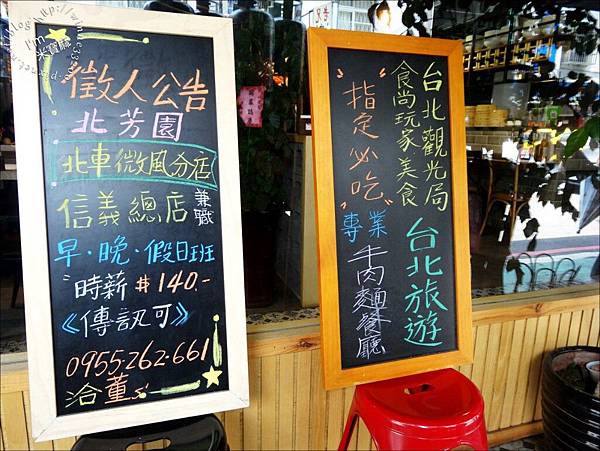 徵人公告
北芳園
北車微風分店
信義總店 兼職
早·晚·假日班
時薪 $140.-
《傳訊可》
0955-262-661
洽董s'
台北觀光局
食尚玩家美食
"指定必吃"
台北旅遊
專業
牛肉麵餐廳